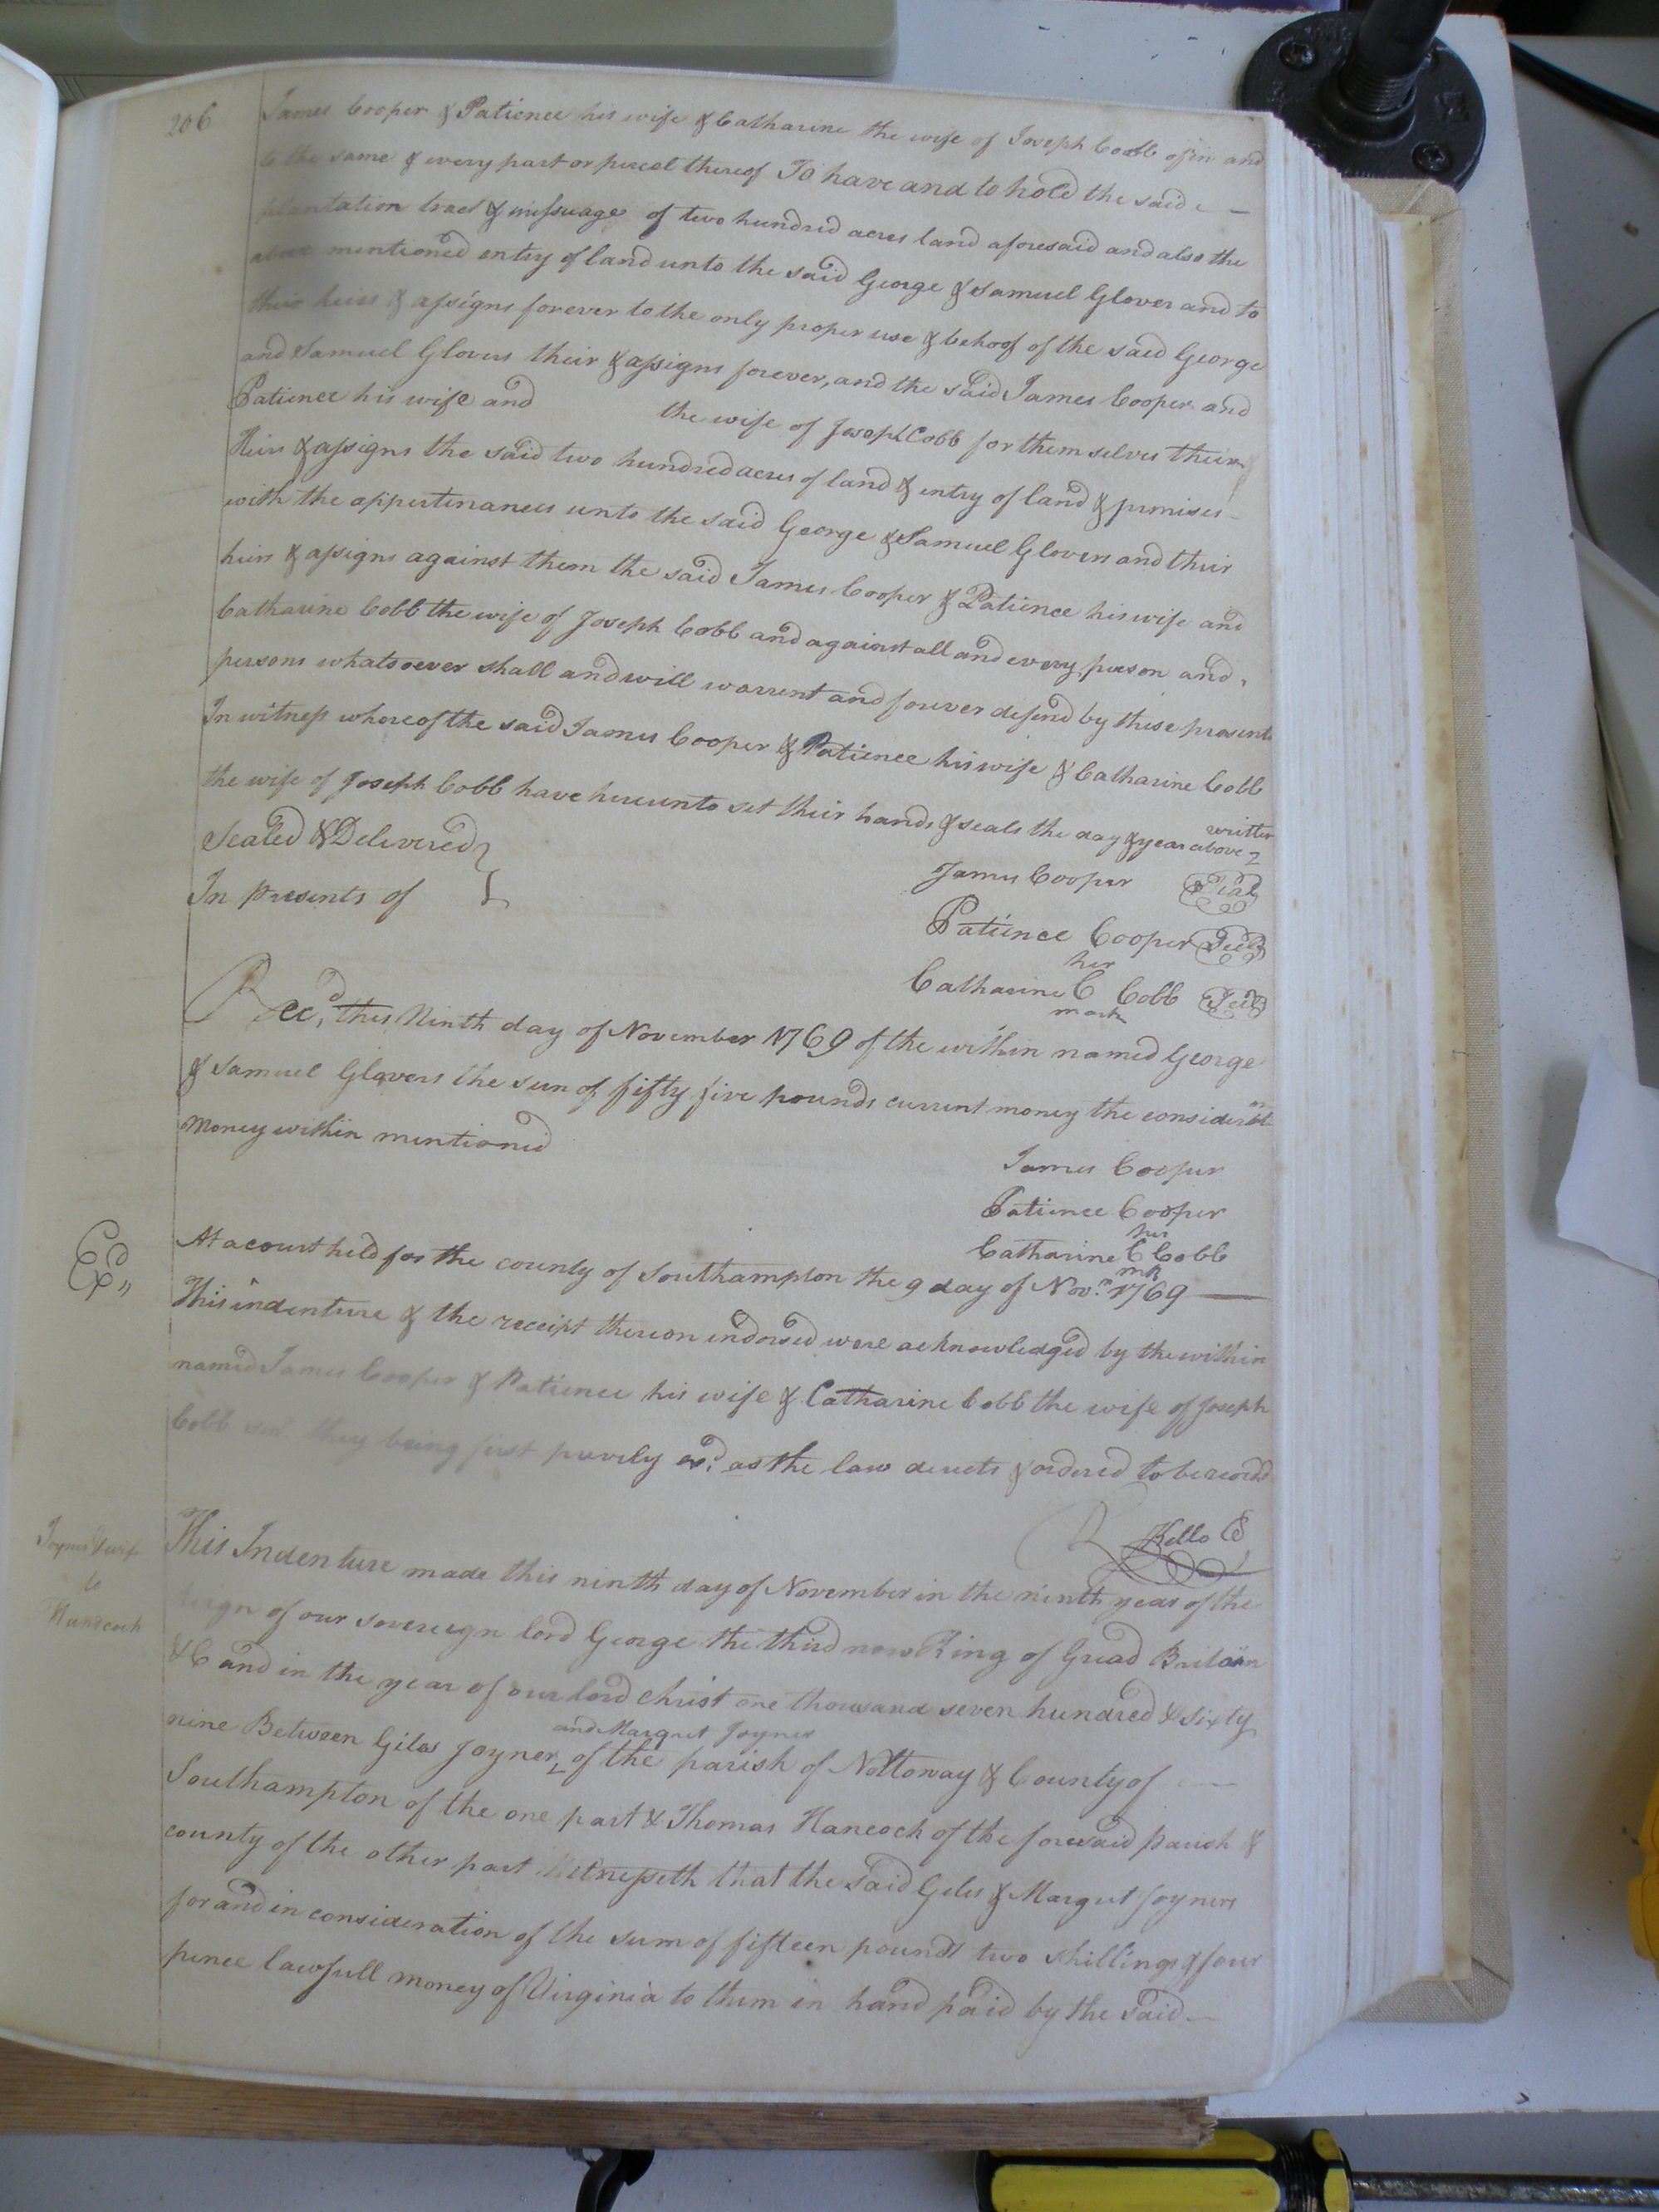 206
James Cooper & Patience his wife & Catharine the wife of Joseph Cobb of in and
to the same & every part or parcel thereof To have and to hold the said
plantation tract & messuage of two hundred acres land aforesaid and also the
above mentioned entry of land unto the said George & Samuel Glover and to
their heirs & assigns forever to the only proper use & behoof of the said George
and Samuel Glovers their & assigns forever, and the said James Cooper and
Patience his wife and the wife of Joseph Cobb for themselves their
Heirs & assigns the said two hundred acres of land & entry of land & premises
with the appertinances unto the said George & Samuel Glovers and their
heirs & assigns against them the said James Cooper & Patience his wife and
Catharine Cobb the wife of Joseph Cobb and against all and every person and
persons whatsoever shall and will warrent and forever defend by these presents
In witness whereof the said James Cooper & Patience his wife & Catharine Cobb
the wife of Joseph Cobb have hereunto set their hands & seals the day & year above written
Sealed & Delivered
In Presents of
James Cooper Seal
Patience Cooper Seal
her
Catharine C Cobb Seal
mark
Recd, this Ninth day of November 1769 of the within named George
& Samuel Glovers the sum of fifty five pounds current money the
Money within mentioned
James Cooper
Patience Cooper
her
Catharine C Cobb
mk
At a court held for the county of Southampton the 9 day of Novr 1769
This indenture & the receipt thereon endorsed were acknowledged by the within
named James Cooper & Patience his wife & Catharine Cobb the wife of Joseph
Cobb they being first privily as the law derects & ordered to be
R Kello
Joyner & wife
to
Hanscock
This Indenture made this ninth day of November in the ninth year of the
reign of our sovereign lord George the third now King of Gread Britain
&C and in the year of our lord christ one thousand seven hundred & sixty
nine Between Giles Joyner and Margret Joyner of the parish of Nottoway & County of
Southampton of the one part & Thomas Hancock of the foresaid parish &
county of the other part Witnesseth that the said Giles & Margret Joyners
for and in consideration of the sum of fifteen pounds two shillings & four
pence lawfull money of Virginia to them in hand paid by the said